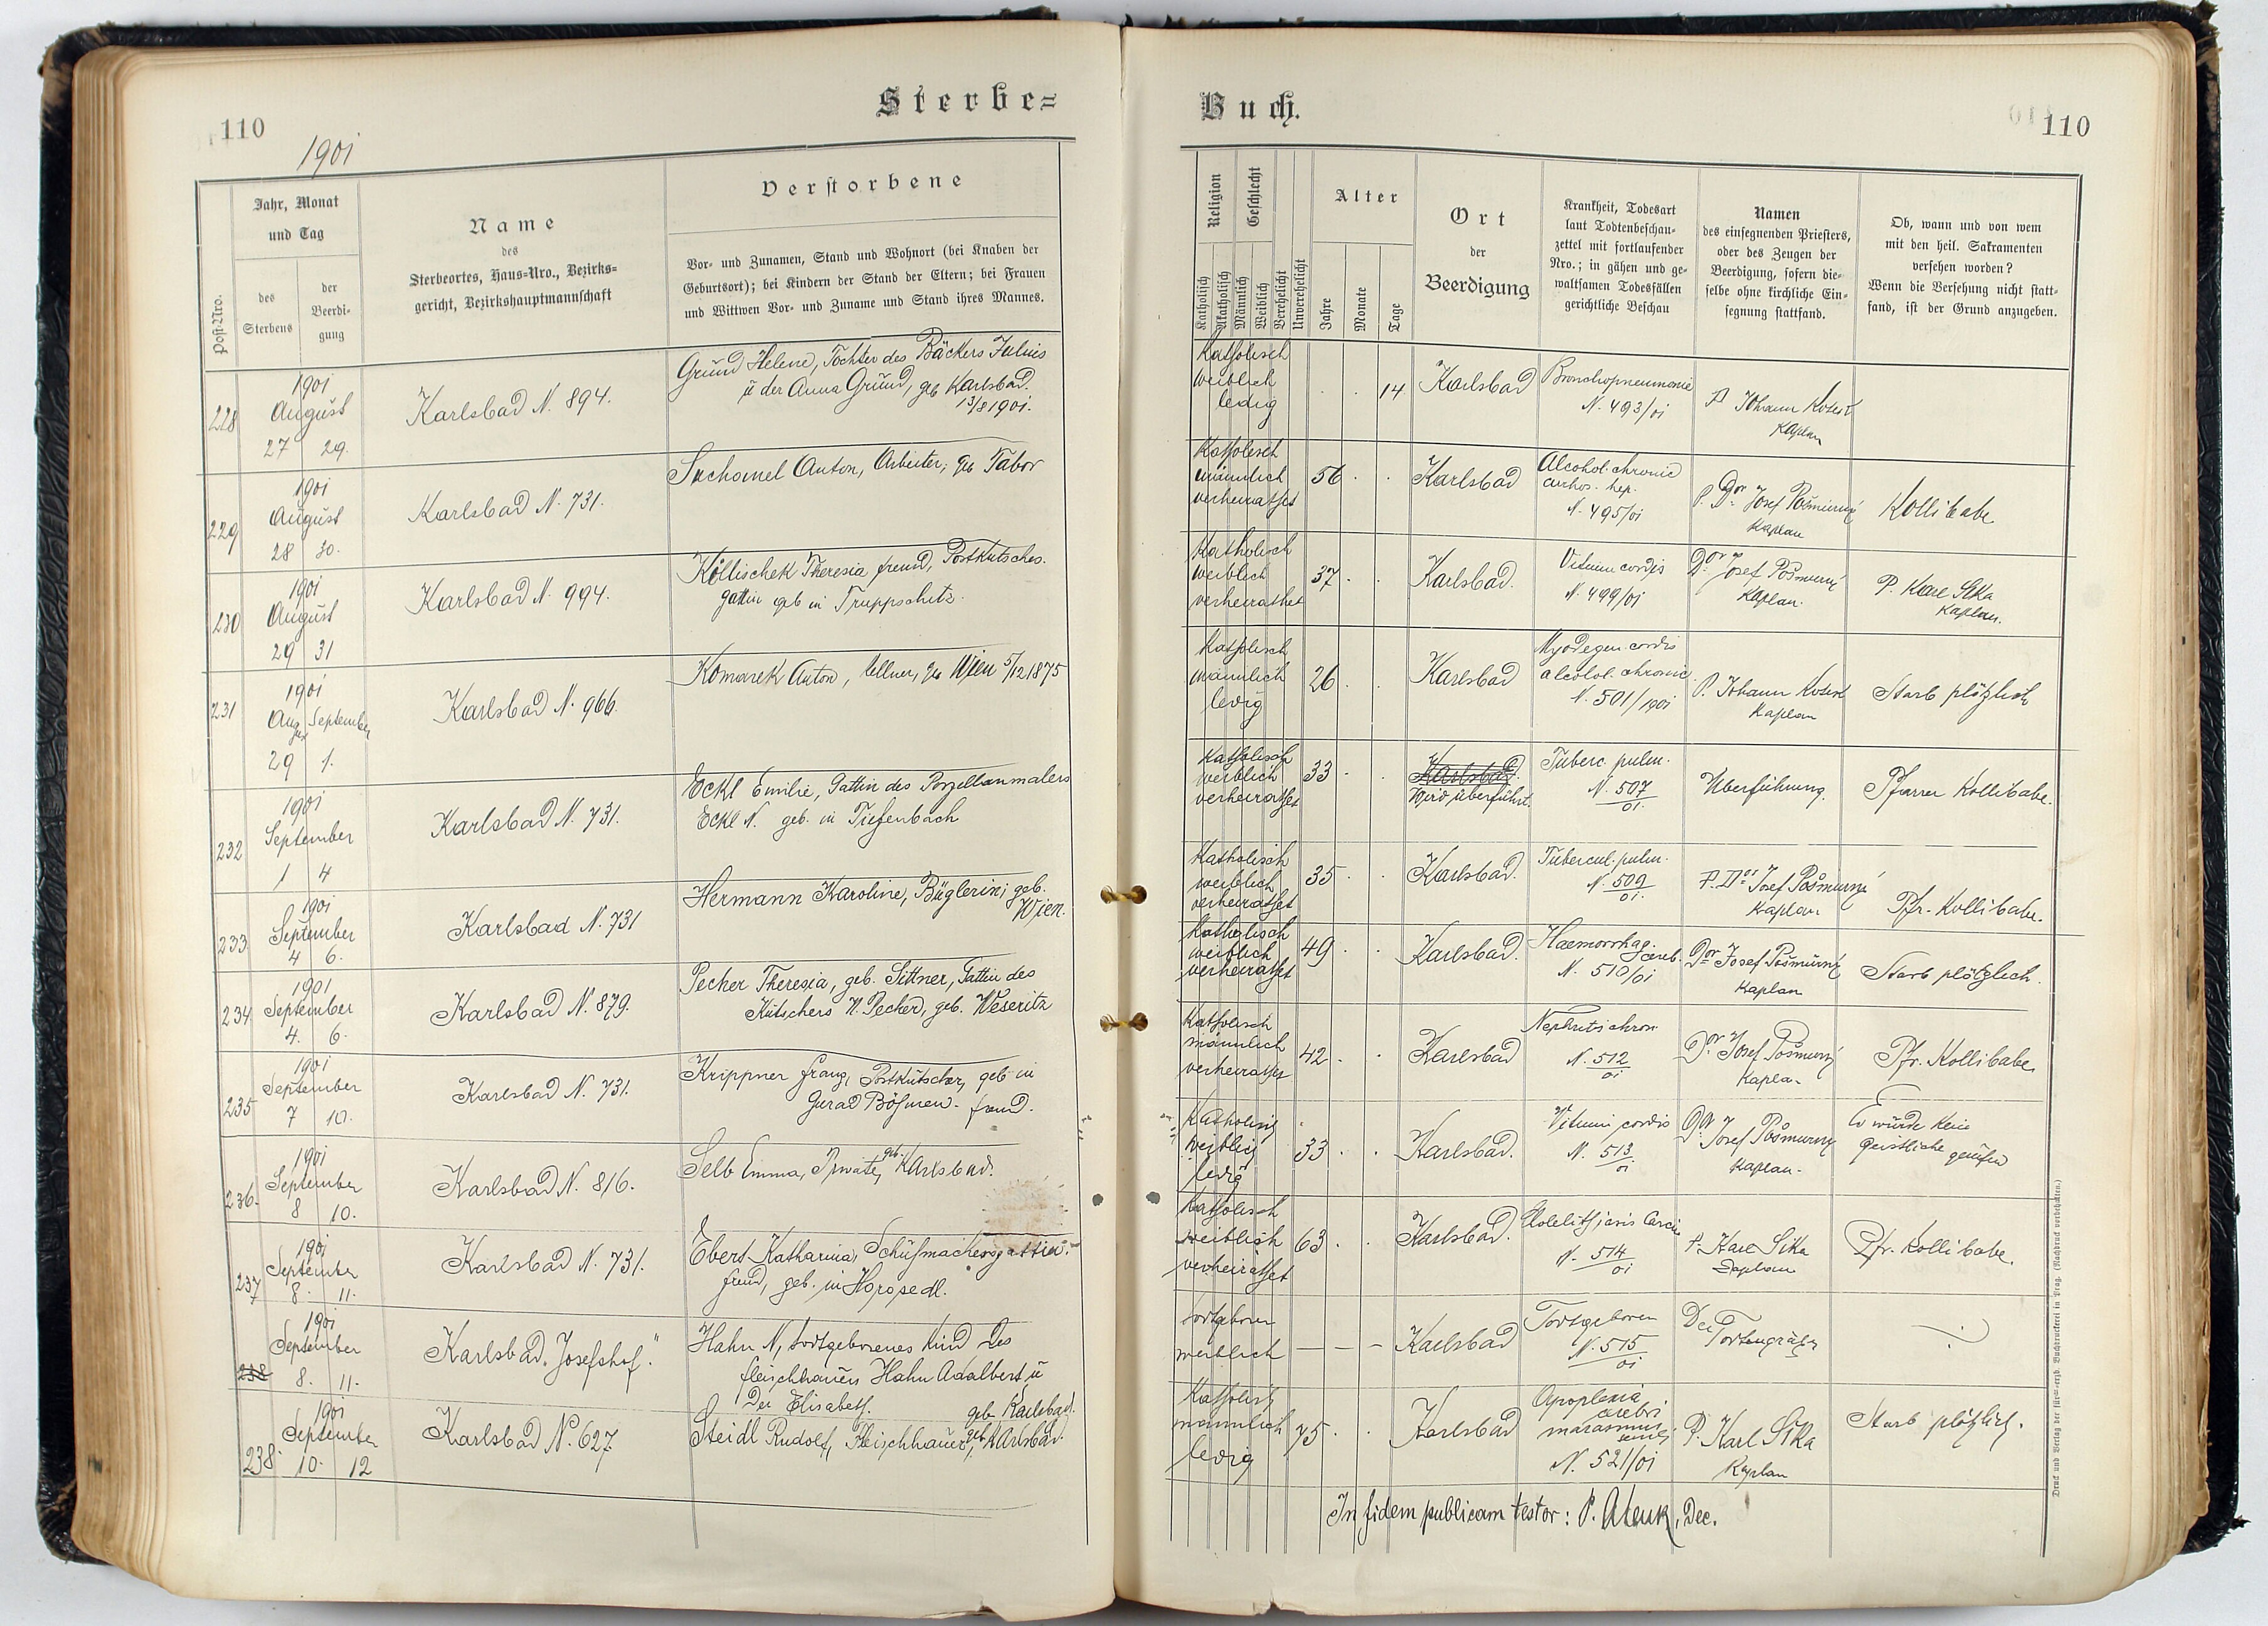 110
Sterbe=
1901
Post-Nro.
Jahr, Monat
und Tag
des
Sterbens
der
Beerdi-
gung
Name
des
Sterbeortes, Haus-Nro., Bezirks=
gericht, Bezirkshauptmannschaft
Verstorbene
Vor- und Zunamen, Stand und Wohnort (bei Knaben der
Geburtsort); bei Kindern der Stand der Eltern; bei Frauen
und Wittwen Vor- und Zuname und Stand ihres Mannes.
228
1901
August
27 29.
Karlsbad N. 894.
Grund Helene, Tochter des Bäckers Julius
u der Anna Grund, geb Karlsbad.
13/8 1901.
229
1901
August
28 30.
Karlsbad N. 731.
Suchomel Anton, Arbeiter, geb Tabor
230
1901
August
29 31
Karlsbad N. 994.
Köllischek Theresia fremd, Postkutschers-
gattin geb in Truppschitz.
231
1901
Aug September
29 1.
Karlsbad N. 966.
Komarek Anton, Kellner, geb Wien 5/12 1875
232
1901
September
1 4
Karlsbad N. 731.
Eckl Emilie, Gattin des Porzellanmalers
Eckl N. geb. in Tiefenbach
233
1901
September
4 6.
Karlsbad N. 731
Hermann Karoline, Büglerin; geb.
Wien.
234
1901
September
4. 6.
Karlsbad N. 879.
Pecher Theresia, geb. Sittner, Gattin des
Kutschers N. Pecher, geb. Weseritz
235
1901
September
7 10.
Karlsbad N. 731.
Krippner Franz, Postkutscher, geb in
Böhmen. fremd.
236.
1901
September
8 10.
Karlsbad N. 816.
Selb Emma, Private, geb. Karlsbad.
237
1901
September
8. 11.
Karlsbad N. 731.
Ebert Katharina, Schuhmachersgattin.
fremd, geb. in Horosedl.
238
1901
September
8. 11.
Karlsbad „Josefshof".
Hahn N, todtgeborenes Kind des
Fleischhauers Hahn Adalbert u
der Elisabeth. geb Karlsbad.
238.
1901
September
10. 12
Karlsbad No. 627
Steidl Rudolf, Fleischhauer, geb Karlsbad.
Buch.
110
Religion
Geschlecht
Katholisch
Akatholisch
Männlich
Weiblich
Verehelicht
Unverehelicht
Alter
Jahre
Monate
Tage
Ort
der
Beerdigung
Krankheit, Todesart
laut Todtenbeschau-
zettel mit fortlaufender
Nro.; in gähen und ge-
waltsamen Todesfällen
gerichtliche Beschau
Namen
des einsegnenden Priesters,
oder des Zeugen der
Beerdigung, sofern die-
selbe ohne kirchliche Ein-
segnung stattfand.
Ob, wann und von wem
mit den heil. Sakramenten
versehen worden?
Wenn die Versehung nicht statt-
fand, ist der Grund anzugeben.
Katholisch
weiblich
ledig
. . 14
Karlsbad
Bronchopneumonie
N. 493/01
P Johann
Kaplan
Katholisch
männlich
verheirathet
56 . .
Karlsbad
Alcohol. chronic
cirrhos. hep.
N. 495/01
P. Dor Josef Pošmurný
Kaplan
Kollibabe
Katholisch
weiblich
verheirathet
37 . .
Karlsbad.
Vitium cordis
N. 499/01
Dor Josef Pošmurný
Kaplan.
P. Karl Sika
Kaplan.
Katholisch
männlich
ledig
26 . .
Karlsbad
Myodegen. cordis
alcohol. chronic.
N. 501/1901
P. Johann
Kaplan
Starb plötzlich
Katholisch
weiblich
verheirathet
33 . .
Karlsbad.
Wird überführt.
Tuberc. pulm.
N. 507/01.
Überführung.
Pfarrer Kollibabe.
Katholisch
weiblich
verheirathet
35 . .
Karlsbad.
Tubercul. pulm.
N. 509/01.
P. Dor Josef Pošmurný
Kaplan
Pfr. Kollibabe.
Katholisch
weiblich
verheirathet
49 . .
Karlsbad.
Haemorrhag.
cereb.
N. 510/01
Dor Josef Pošmurný
Kaplan
Starb plötzlich.
Katholisch
männlich
verheirathet
42 . .
Karlsbad
Nephritis chron
N. 512/01
Dor Josef Pošmurný
Kaplan
Pfr. Kollibabe
Katholisch
weiblich
ledig
33 . .
Karlsbad.
Vitium cordis
N. 513/01
Dor Josef Pošmurny
Kaplan.
Es wurde kein
Geistliche gerufen
Katholisch
weiblich
verheirathet
63 . .
Karlsbad.
N. 514/01
P. Karl Sika
Kaplan
Pfr. Kollibabe.
todtgeboren
weiblich
— — —
Karlsbad
Todtgeboren
N. 515/01
Der
Todtengräber
Katholisch
männlich
ledig
75 . .
Karlsbad
Apoplexia
cerebri
marasmus
senilis
N. 521/01
P. Karl Sika
Kaplan
Starb plötzlich.
In fidem publicam testor: P. , Dec.
Druck und Verlag der fürst=erzb. Buchdruckerei in Prag. (Nachdruck vorbehalten.)